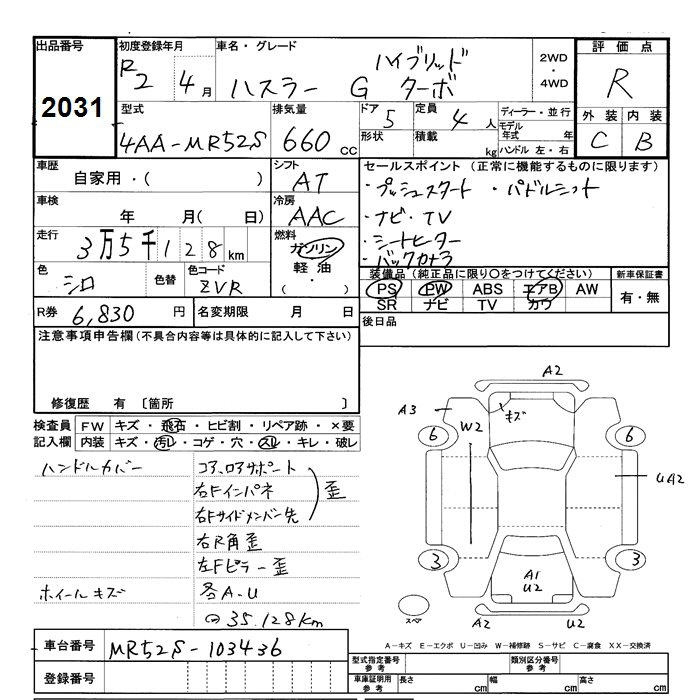 出品番号 初度登録年月 車名・グレード 2WD・4WD 評価点
2031 R2 4月 ハスラー G ハイブリッドターボ R
型式 排気量 ドア 定員 ディーラー・並行 外装 内装
4AA-MR52S 660cc 5 4人 モデル年式 年 C B
形状 積載 kg ハンドル 左・右
車歴 シフト セールスポイント (正常に機能するものに限ります)
自家用・( ) AT ・プッシュスタート ・パドルシフト
車検 冷房 ・ナビ・TV
年 月( 日) AAC ・シートヒーター
走行 燃料 ・バックカメラ
3万5千128km ガソリン
軽油
・( )
色 色替 色コード 装備品(純正品に限り○をつけてください) 新車保証書
シロ ZVR PS PW ABS エアB AW 有・無
SR ナビ TV カワ
R券 6,830円 名変期限 月 日 後日品
注意事項申告欄(不具合内容等は具体的に記入して下さい)
修復歴 有 〔箇所 〕
検査員 FW キズ・飛石・ヒビ割・リペア跡・×要
記入欄 内装 キズ・汚レ・コゲ・穴・スレ・キレ・破レ
ハンドルカバー コアロアサポート
右Fインパネ 歪
右Fサイドメンバー先
右R角歪
左Fピラー歪
ホイールキズ 各A.U
35.128km
A2
A3 キズ
6 W2 6
UA2
3 3
A1
U2
スペ A2 U2
A-キズ E-エクボ U-凹み W-補修跡 S-サビ C-腐食 XX-交換済
車台番号 MR52S-103436 型式指定番号 参考 類別区分番号 参考
登録番号 車庫証明用 参考 長さ cm 幅 cm 高さ cm